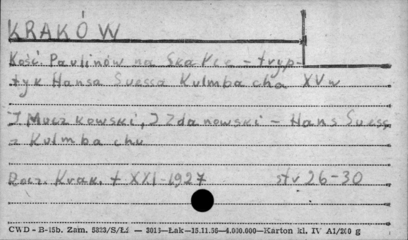 KRAKÓW
Kość. Paulinów na Skałce – tryp-
tyk Hansa Suessa Kulmbacha XVw
J Muczkowski, J Zdanowski – Hans Suess
z Kulmbachu
Rocz. Krak. t XXI – 1927 str 26-30
CWD - B-15b. Zam. 5823/S/Łi — 3015—Łak—15.11.50—4.000.000—Karton kl. IV A1/200 g